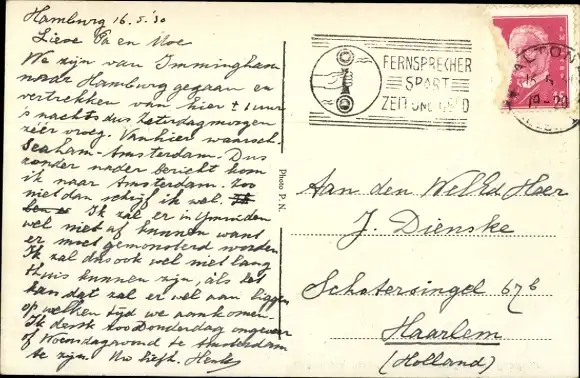 Hamburg 16.5.'30
Lieve Pa en Moe
We zijn van Immingham
naar Hamburg gegaan en
vertrekken van hier 1 uur
's nachts dus Zaterdagmorgen
zeer vroeg. Van hier waarsch.
Seaham-Amsterdam. Dus
zonder nader bericht kom
ik naar Amsterdam. Zoo
niet dan schrijf ik wel.
Ik zal er in Ymuiden
wel niet af kunnen want
er moet gemonsterd worden
Ik zal dus ook wel niet lang
thuis kunnen zijn, als het
kan dat zal er wel aan liggen
op welken tijd we aankomen.
Ik denk zoo Donderdag ongeveer
of Woensdagavond te Amsterdam
te zijn. Uw liefh. Henk
Photo P.N.
FERNSPRECHER
SPART
ZEIT UND GELD
ALTONA
Aan den WelEd Heer
J. Dienske
Schotersingel 67b
Haarlem
(Holland)